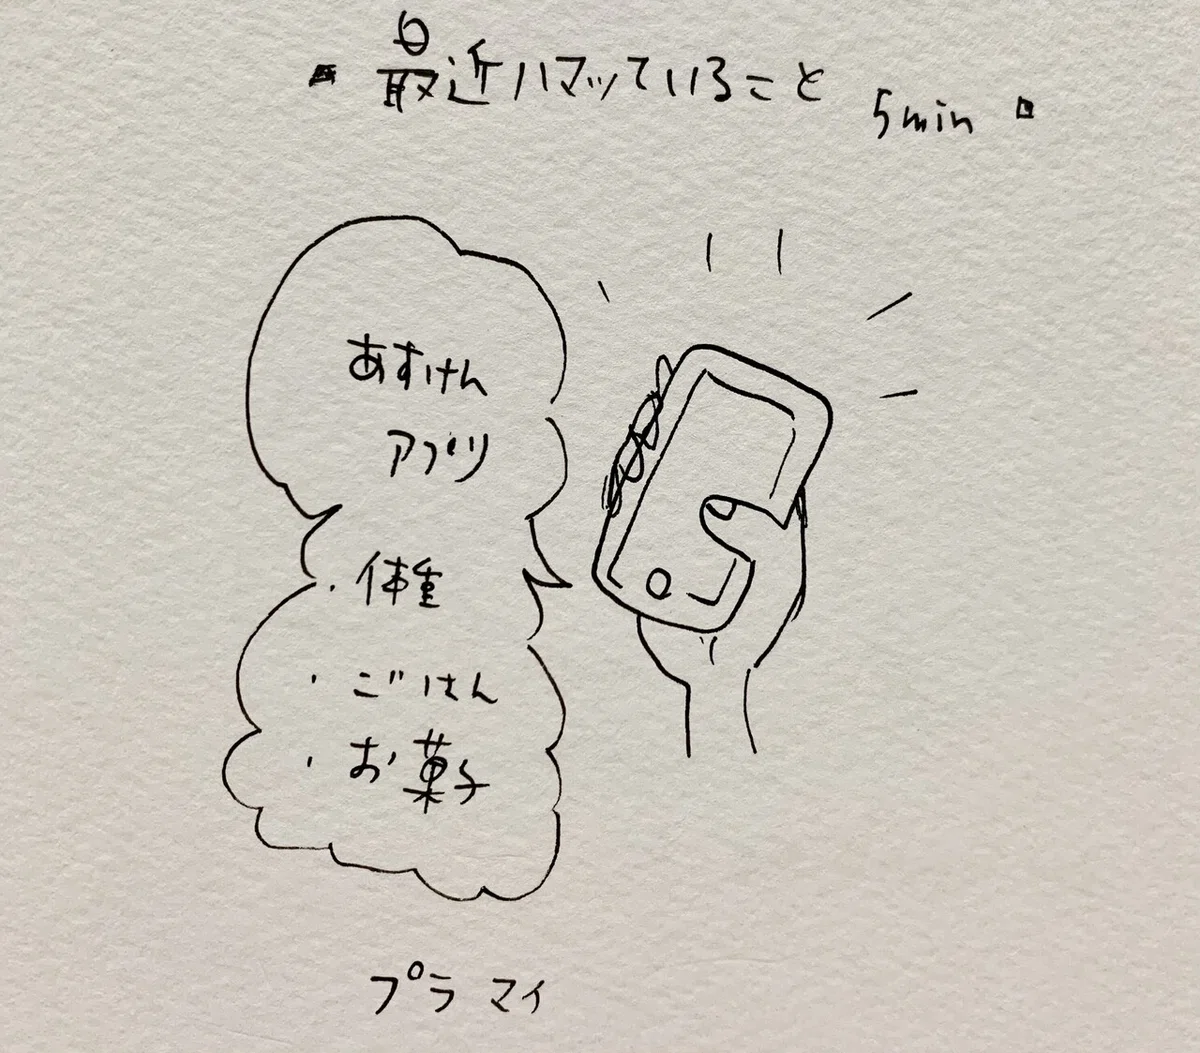 最近ハマッていること 5min
あすけん
アプリ
・体重
・ごはん
・お菓子
プラマイ